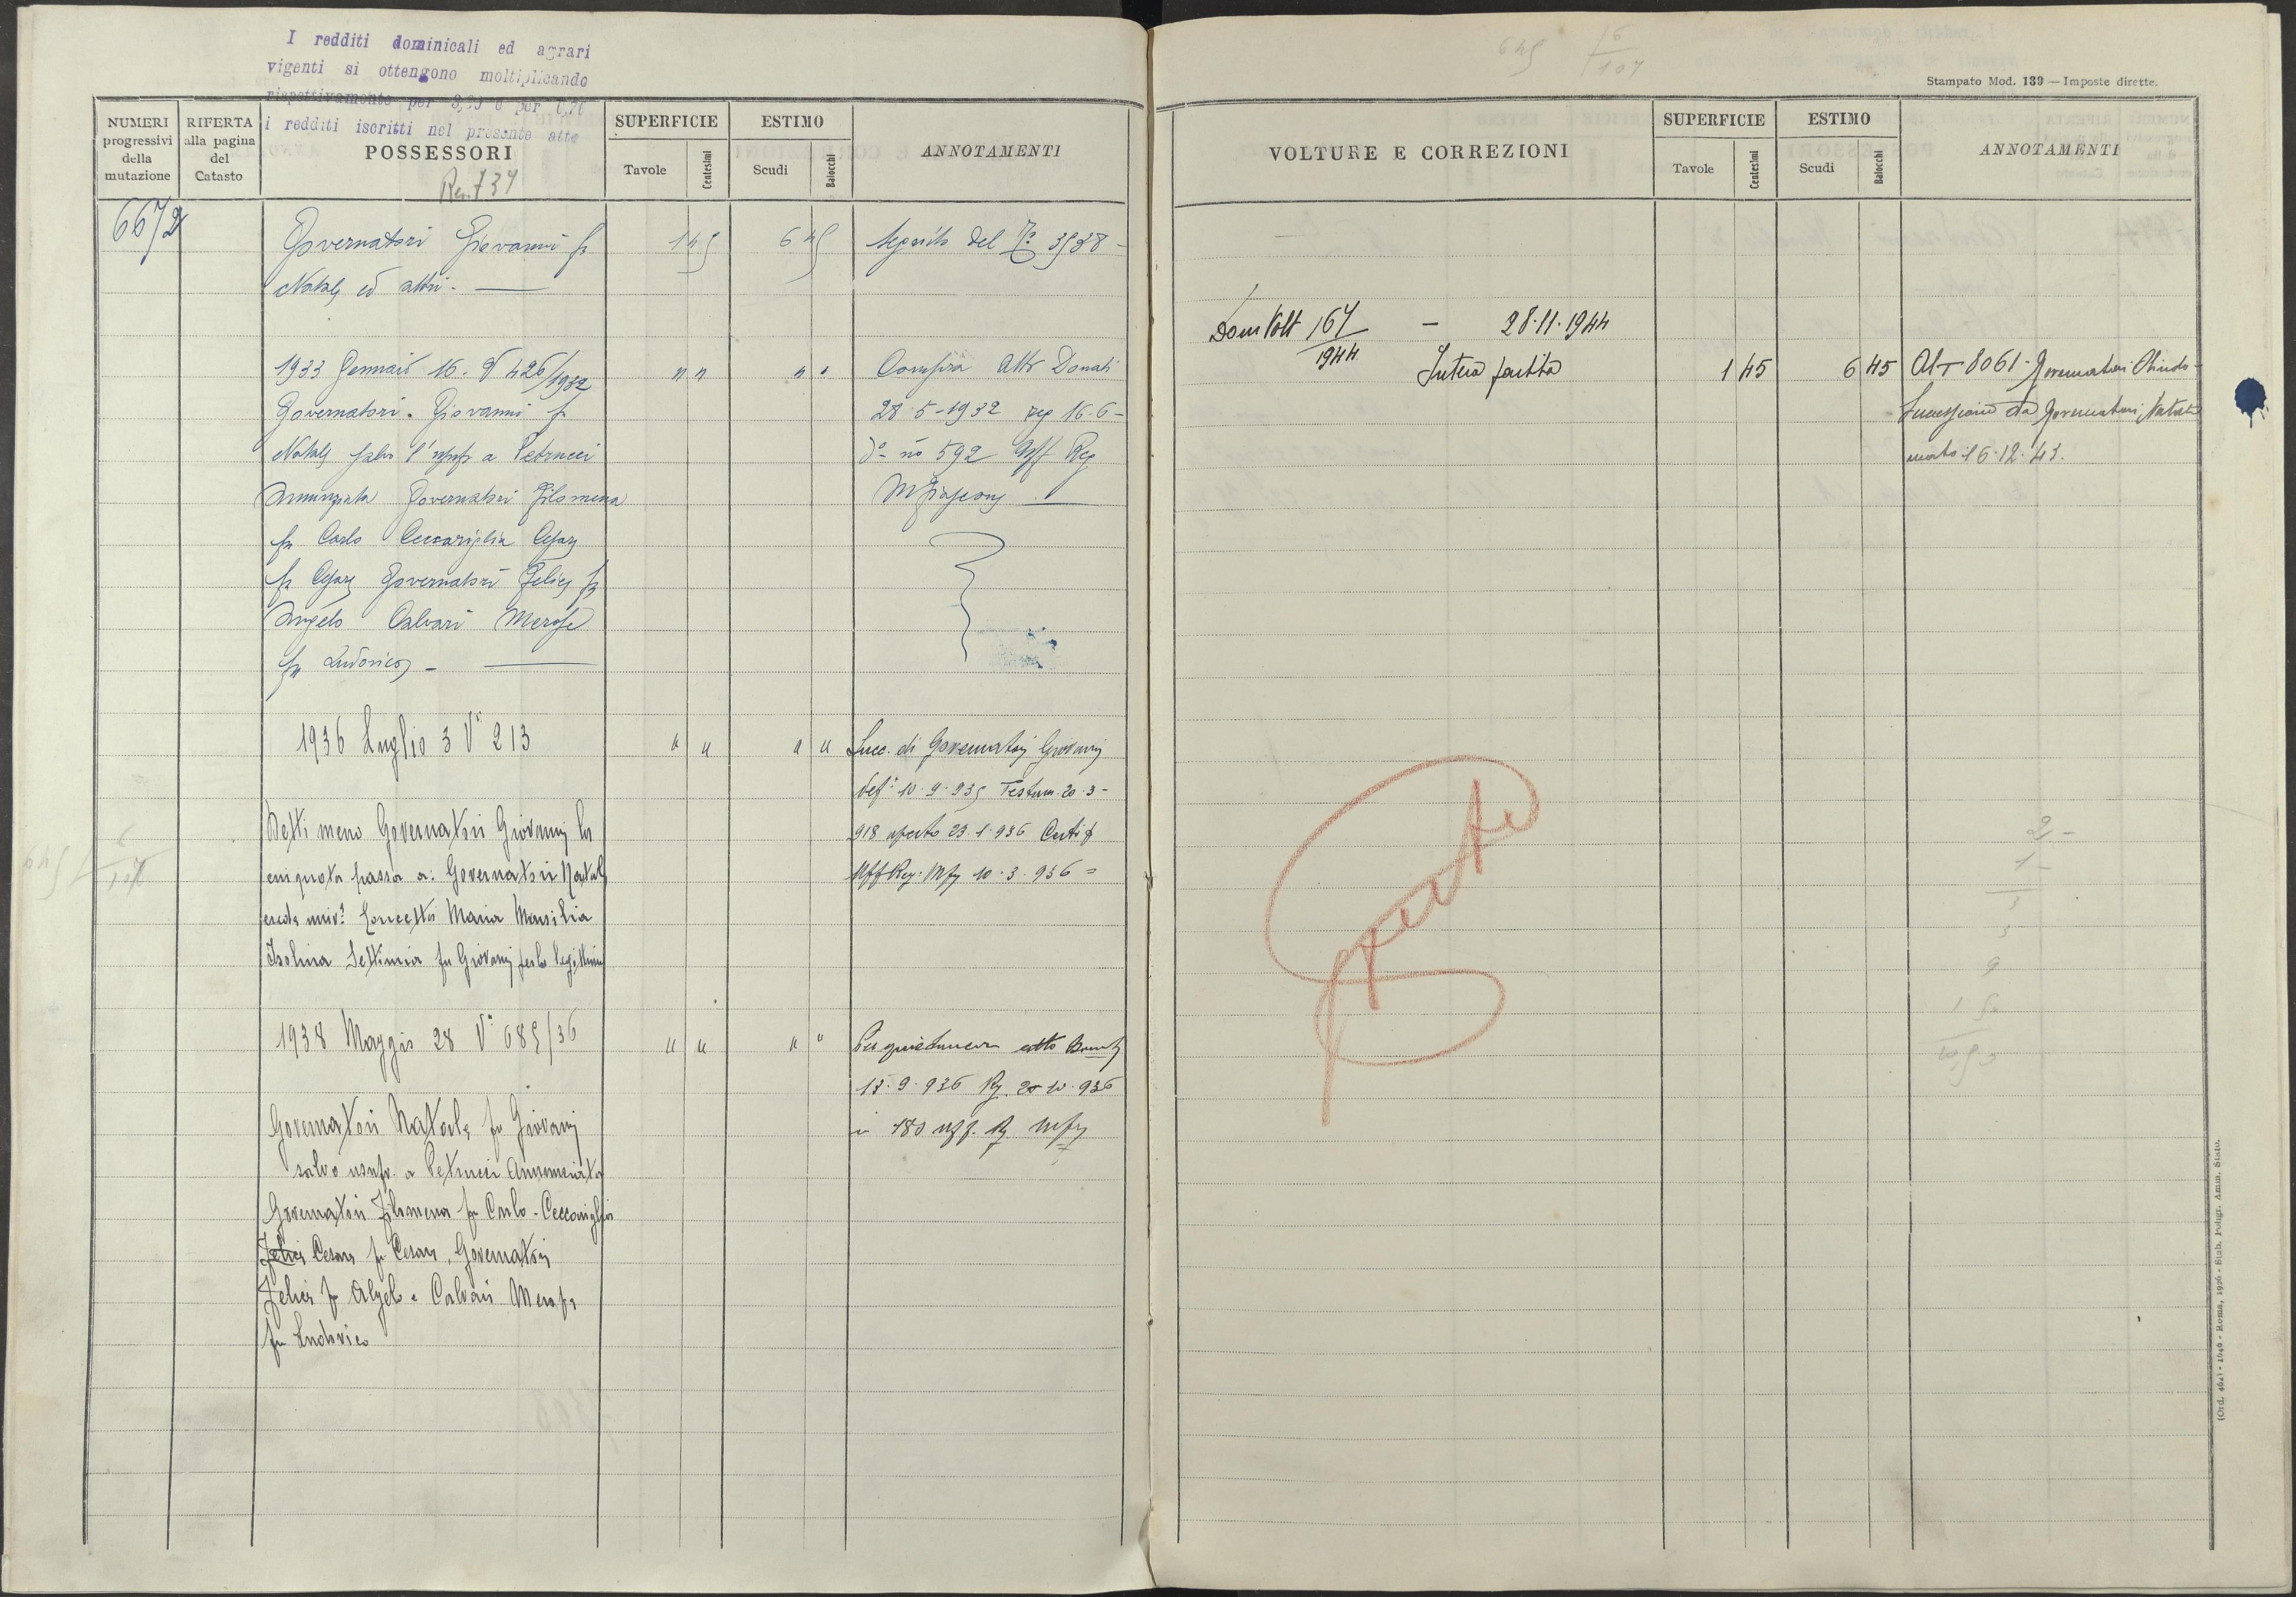 I redditi dominicali ed agrari
vigenti si ottengono moltiplicando
rispettivamente per e per
i redditi iscritti nel presente atto
NUMERI progressivi della mutazione
RIFERTA alla pagina del Catasto
POSSESSORI
SUPERFICIE
Tavole
Centesimi
ESTIMO
Scudi
Baiocchi
ANNOTAMENTI
6672
Governatori Giovanni fu
Natale ed altri. —
1 45
6 45
Seguito del N° 3938 -
1933 Gennaio 16. V 426/1932
" "
" "
Compra Atto Donati
Governatori. Giovanni fu
28-5-1932 reg 16-6-
Natale salvo l'usuf a Petrucci
d° n° 592 Uff Reg
Annunziata Governatori Filomena
Mfiascone —
fu Carlo Ceccariglia Cesare
fu Cesare Governatori Felice fu
Angelo Calvari Merope
fu Ludovico - —
1936 Luglio 3 V° 213
" "
" "
Succ. di Governatori Giovanni
def° 10.9.935 Testam. 20.3-
Detti meno Governatori Giovanni la
918 aperto 23.1.936 Certif
cui quota passa a: Governatori Natale
Uff Reg. Mfne 10.3.936 =
erede univ. Concetta Maria Marsilia
Isolina Settimia fu Giovanni per la legittima
1938 Maggio 28 V° 685/36
" "
" "
Ricognizione atto
15.9.936 Rg. 20 10.936
Governatori Natale fu Giovanni
n 180 uff. Rg Mfne
salvo usufr. a Petrucci Annunciata
Governatori Filomena fu Carlo - Ceccariglia
Felice Cesare fu Cesare, Governatori
Felice fu Angelo e Calvari Merope
fu Ludovico
645 6/107
Stampato Mod. 139 — Imposte dirette.
VOLTURE E CORREZIONI
SUPERFICIE
Tavole
Centesimi
ESTIMO
Scudi
Baiocchi
ANNOTAMENTI
Dom Volt 167/1944 — 28.11.1944
Intera partita
1 45
6 45
Alt 8061 - Governatori
Successione da Governatori Natale
morto 16.12.43.
2 -
1 -
3
9
(Ord. 4641 - 1040 - Roma, 1926 - Stab. Poligr. Amm. Stato.